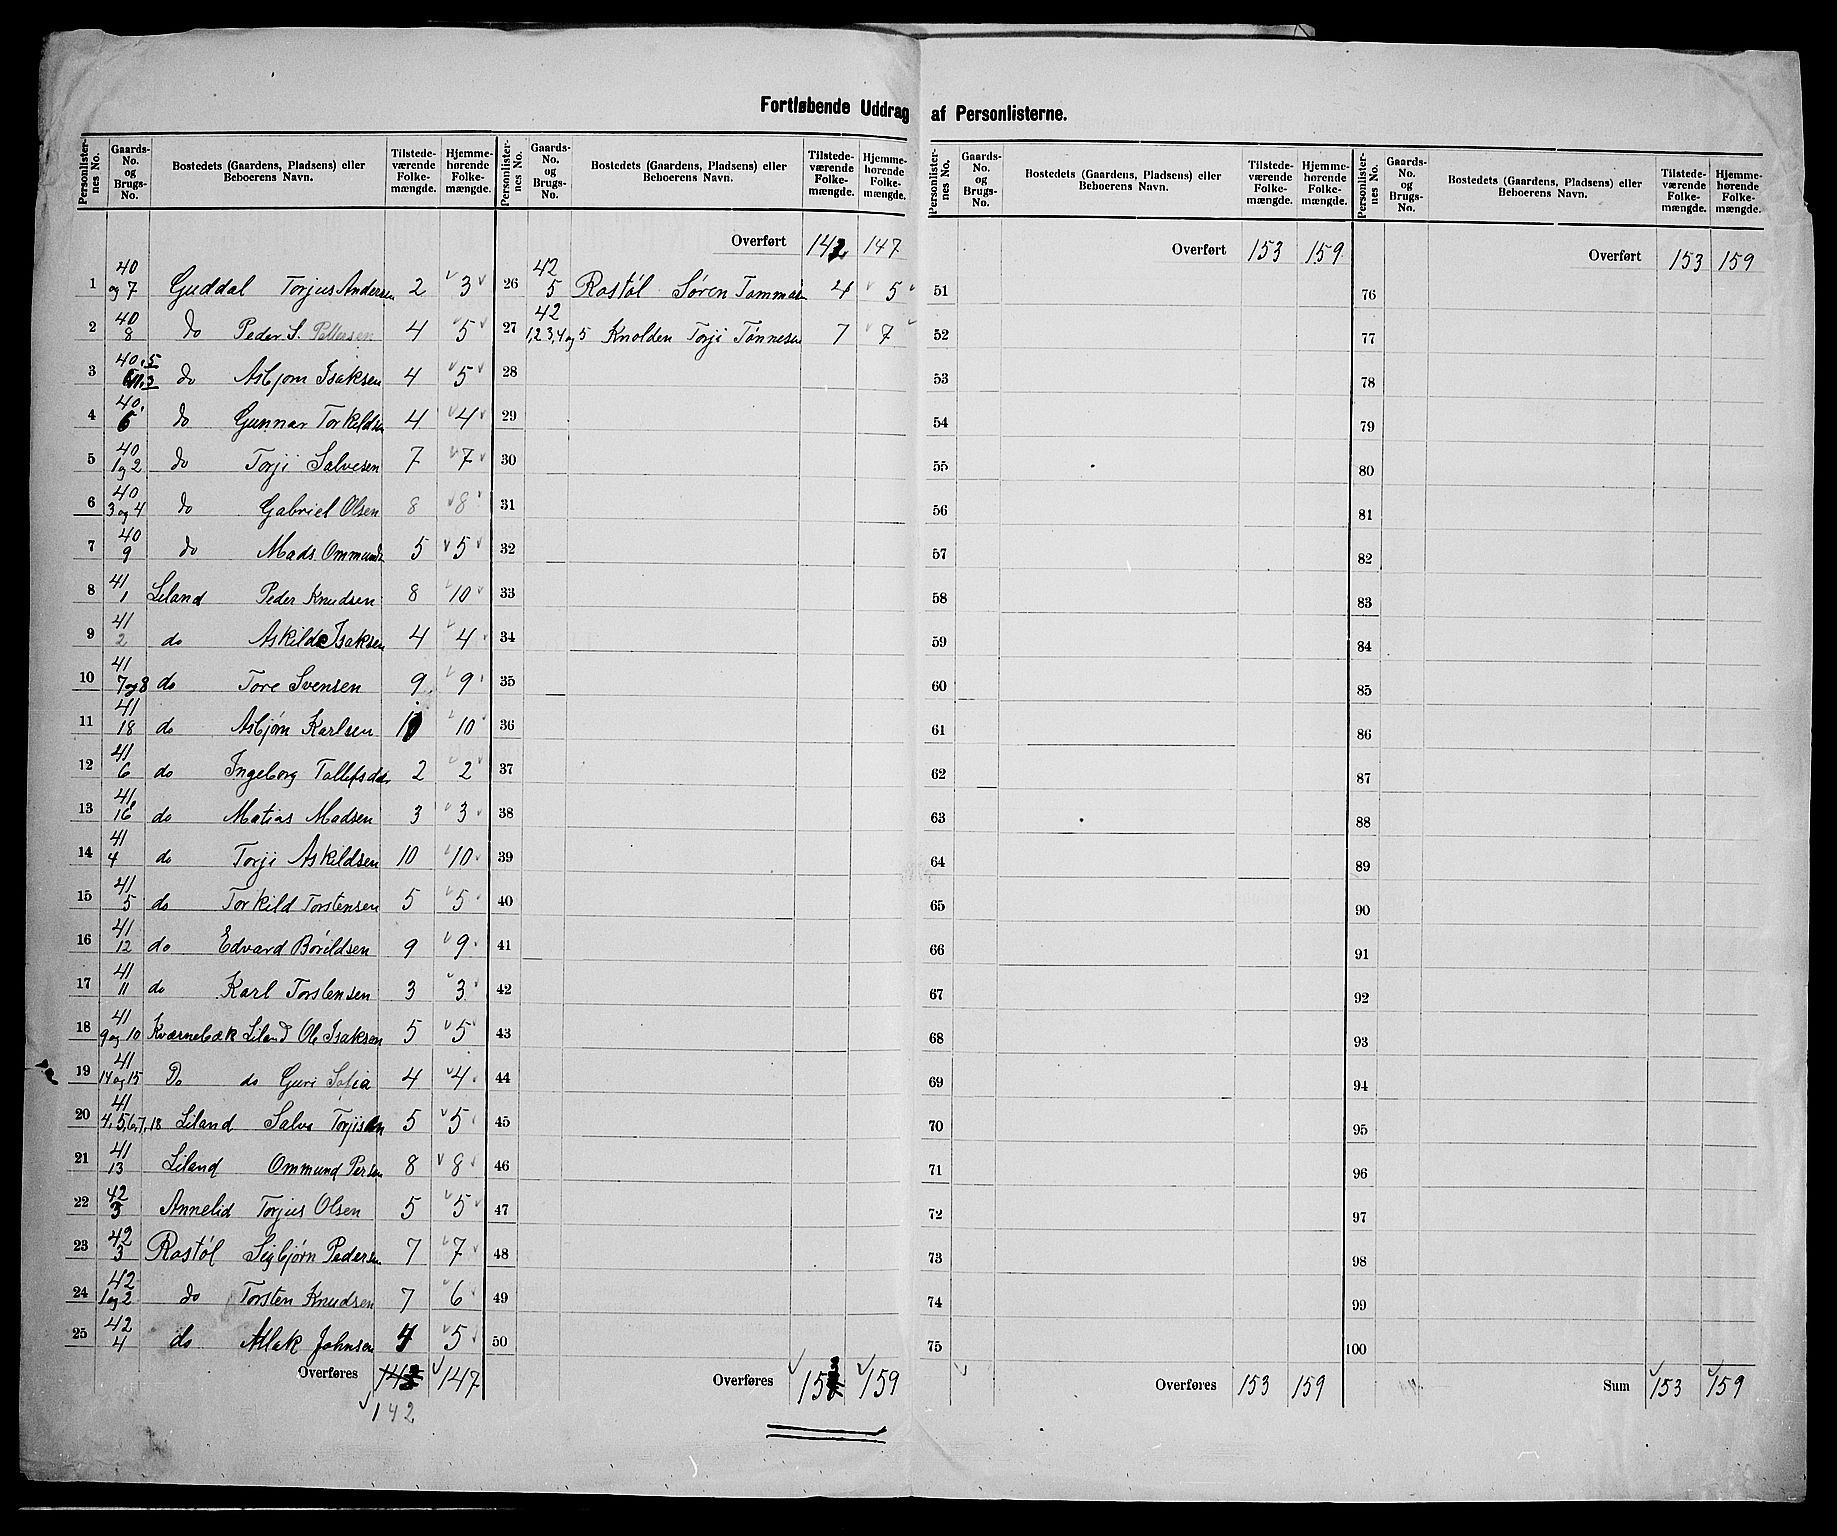 Fortløbende Uddrag af Personlisterne.
Personlister-nes No. Gaards-No. og Brugs-No. Bostedets (Gaardens, Pladsens) eller Beboerens Navn. Tilstede-værende Folke-mængde. Hjemme-hørende Folke-mængde.
1 40 og 7 Guddal Torjus Andersen 2 3
2 40 8 do Peder S. Pettersen 4 5
3 40, 5 do Asbjørn Isaksen 4 5
4 40, 6 do Gunnar Torkildsen 4 4
5 40 1 og 2 do Torji Salvesen 7 7
6 40 3 og 4 do Gabriel Olsen 8 8
7 40 9 do Mads Ommunds 5 5
8 41 1 Liland Peder Knudsen 8 10
9 41 2 do Askild Isaksen 4 4
10 41 7 og 8 do Tore Svensen 9 9
11 41 18 do Asbjørn Karlsen 10 10
12 41 6 do Ingeborg Tallefsdtr 2 2
13 41 16 do Matias Madsen 3 3
14 41 4 do Torji Askildsen 10 10
15 41 5 do Torkild Torstensen 5 5
16 41 12 do Edvard Børildsen 9 9
17 41 11 do Karl Torstensen 3 3
18 41 9 og 10 Kværnebæk Liland Ole Isaksen 5 5
19 41 14 og 15 Do do Guri Sofia 4 4
20 41 4, 5, 6, 7, 18 Liland Salve Torjisen 5 5
21 41 13 Liland Ommund Persen 8 8
22 42 3 Annelid Torjus Olsen 5 5
23 42 3 Rostøl Sigbjørn Pedersen 7 7
24 42 1 og 2 do Torsten Knudsen 7 6
25 42 4 do Atlak Johnsen 4 5
Overføres 147
142
Personlister-nes No. Gaards-No. og Brugs-No. Bostedets (Gaardens, Pladsens) eller Beboerens Navn. Tilstede-værende Folke-mængde. Hjemme-hørende Folke-mængde.
Overført 142 147
26 42 5 Rostøl Søren Tommasen 4 5
27 42 1, 2 3, 4 og 5 Knolden Torji Tønnesen 7 7
28
29
30
31
32
33
34
35
36
37
38
39
40
41
42
43
44
45
46
47
48
49
50
Overføres 153 159
Personlister-nes No. Gaards-No. og Brugs-No. Bostedets (Gaardens, Pladsens) eller Beboerens Navn. Tilstede-værende Folke-mængde. Hjemme-hørende Folke-mængde.
Overført 153 159
51
52
53
54
55
56
57
58
59
60
61
62
63
64
65
66
67
68
69
70
71
72
73
74
75
Overføres 153 159
Personlister-nes No. Gaards-No. og Brugs-No. Bostedets (Gaardens, Pladsens) eller Beboerens Navn. Tilstede-værende Folke-mængde. Hjemme-hørende Folke-mængde.
Overført 153 159
76
77
78
79
80
81
82
83
84
85
86
87
88
89
90
91
92
93
94
95
96
97
98
99
100
Sum 153 159